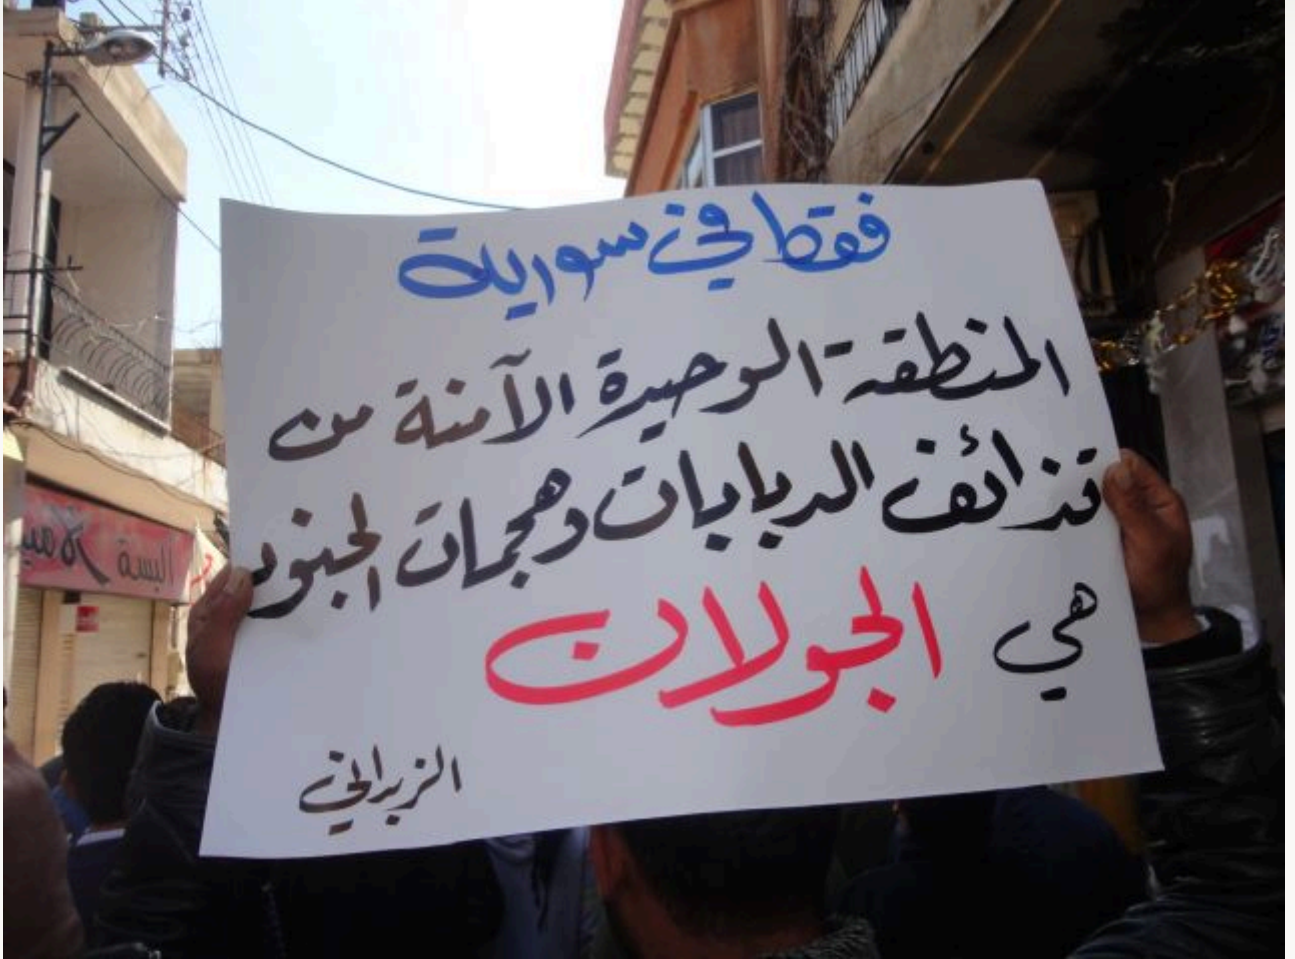 فقط في سورية
المنطقة الوحيدة الآمنة من
قذائف الدبابات وهجمات الجنود
هي الجولان
الزبداني
البسة الأمير